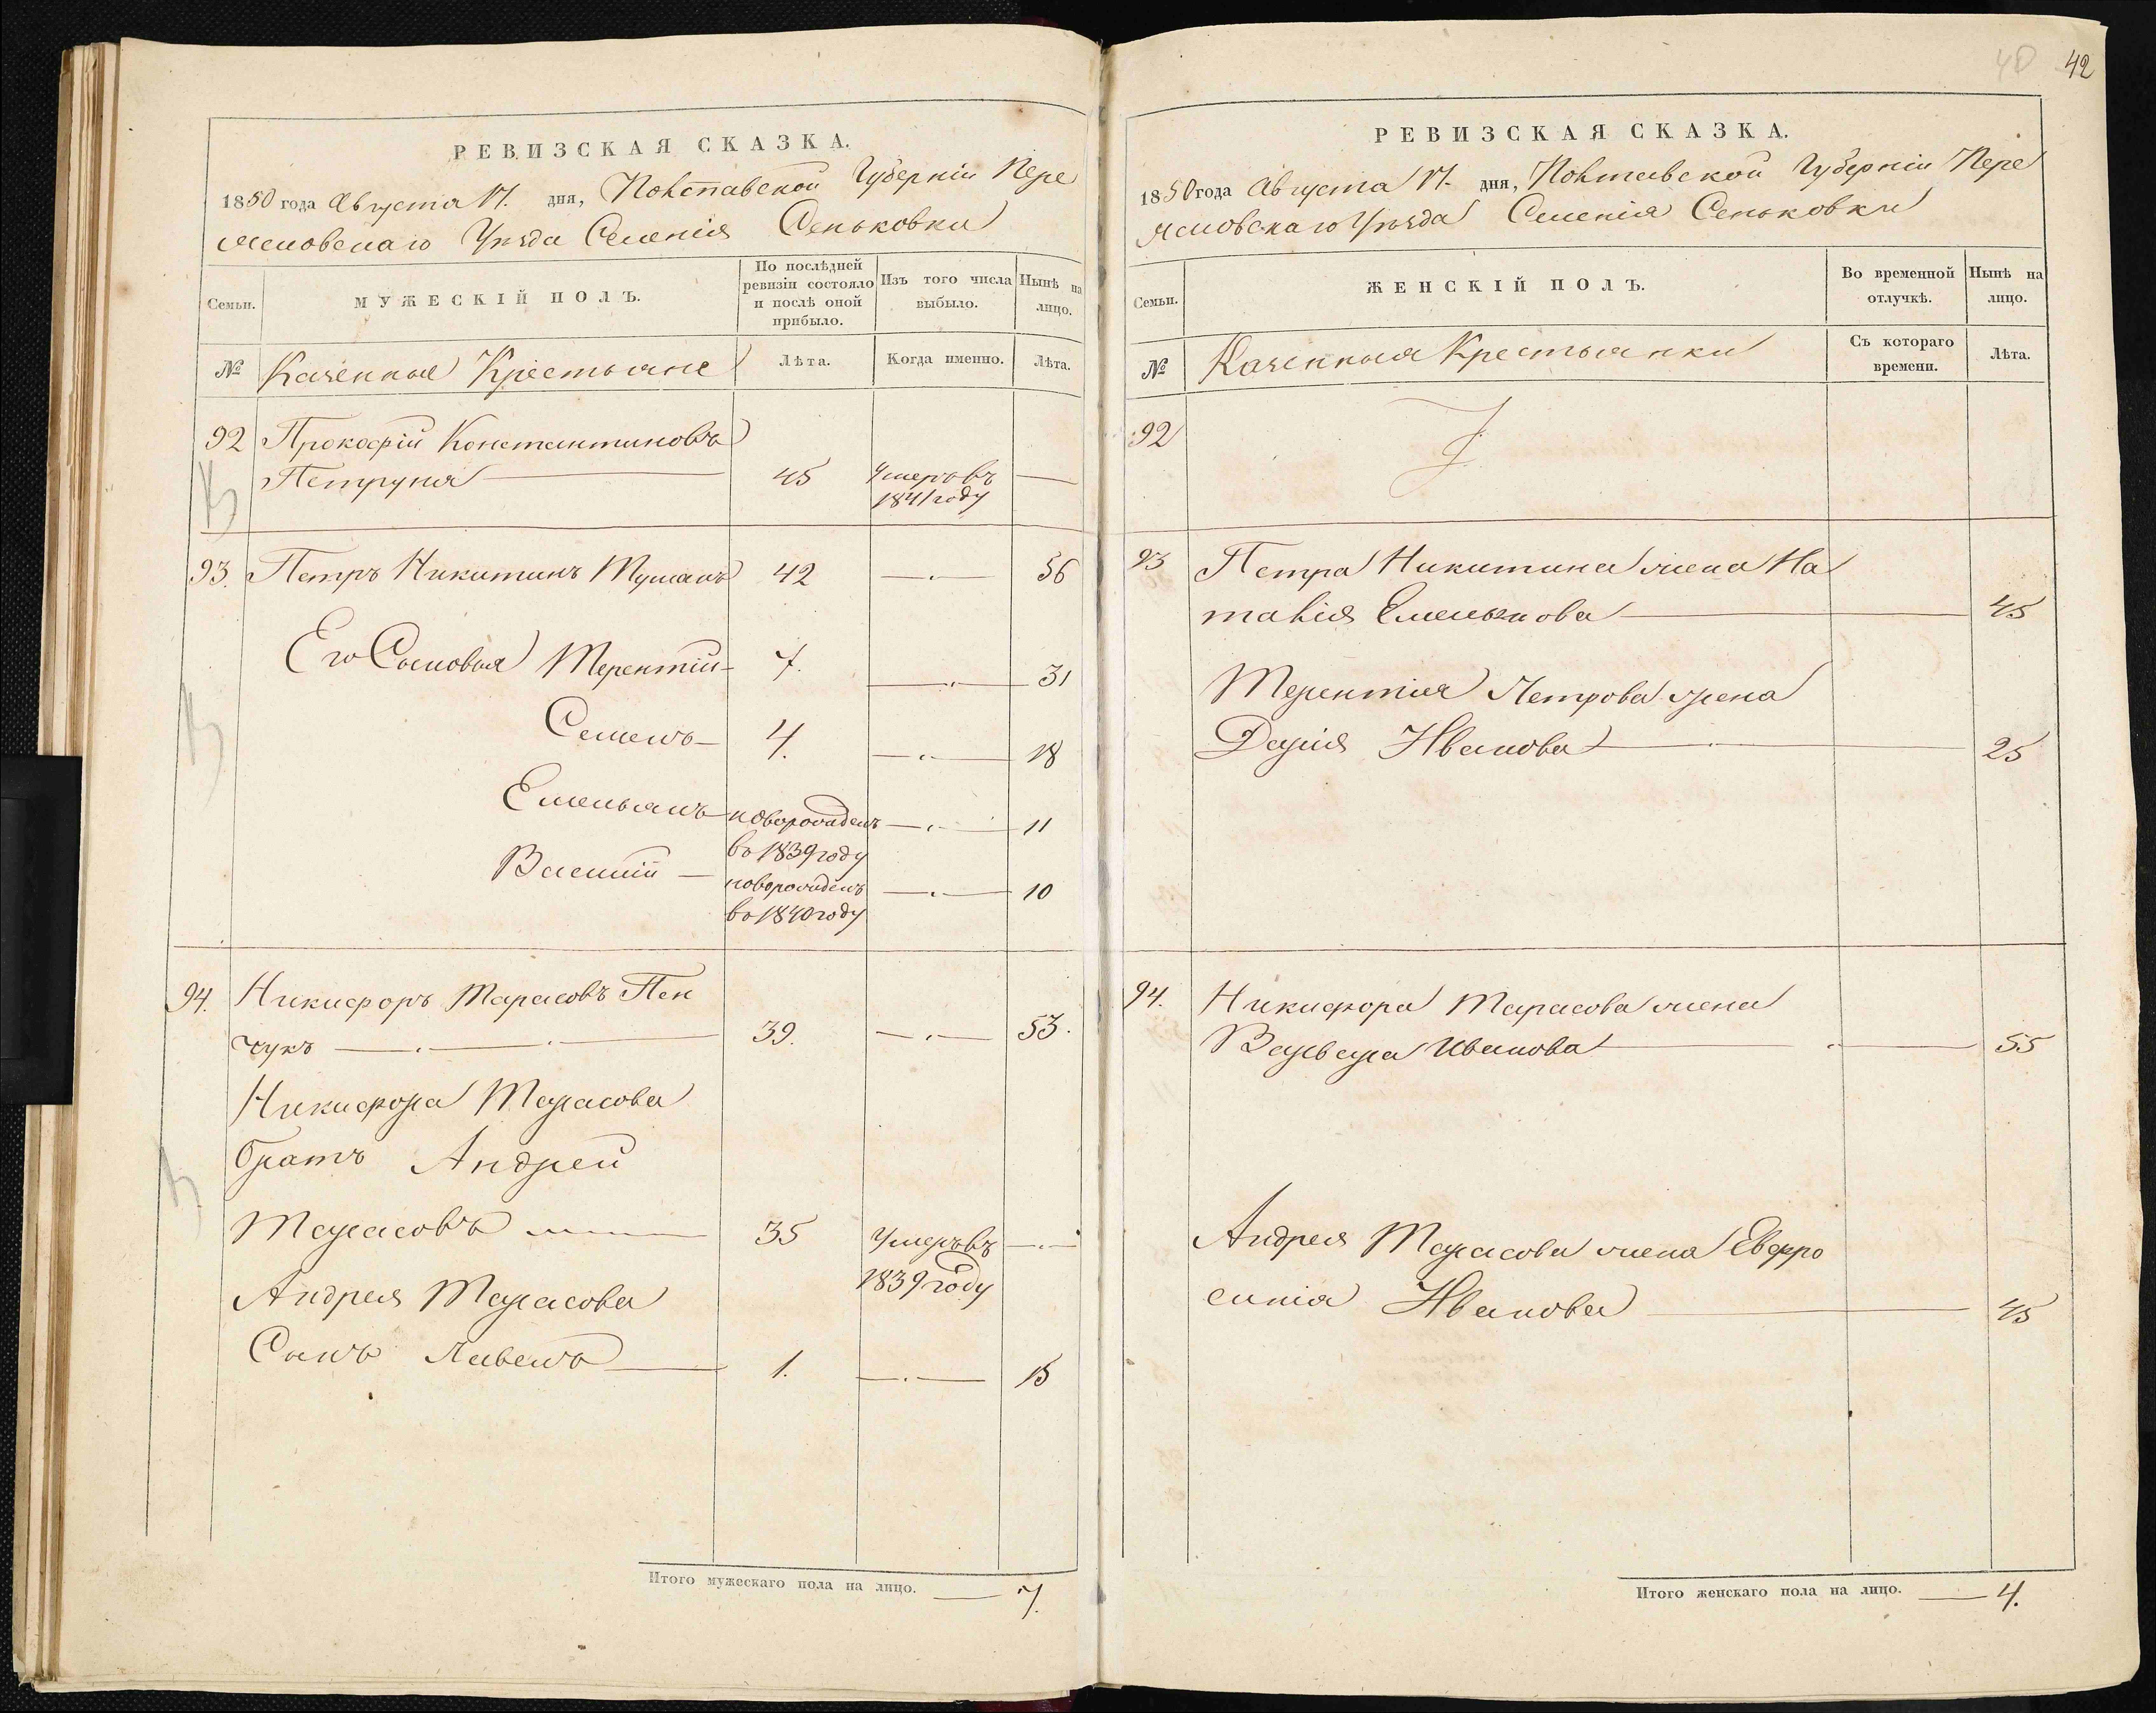 РЕВИЗСКАЯ СКАЗКА.
1850 года Августа 17. дня, Полтавской Губерніи Пере
яславскаго Уѣзда Селенія Сеньковки
Семьи.
МУЖЕСКІЙ ПОЛЪ.
По послѣдней ревизіи состояло и послѣ оной прибыло.
Изъ того числа выбыло.
Нынѣ на лицо.
№
Казенные Крестьяне
Лѣта.
Когда именно.
Лѣта.
92 Прокофій Константиновъ
Петруня 45 Умеръ въ —
1841 году
93. Петръ Никитинъ 42 — 56
Его Сыновья Терентій 7. — 31
Семенъ 4. — 18
Емельянъ новорожденъ — 11
въ 1839 году
Василій — новорожденъ — 10
въ 1840 году
94. Никифоръ Тарасовъ Пен
чукъ — 39. — 53.
Никифора Тарасова
братъ Андрей
Тарасовъ — 35 Умеръ въ —
1839 году
Андрея Тарасова
Сынъ Павелъ 1. — 15
Итого мужескаго пола на лицо. — 7.
40 42
РЕВИЗСКАЯ СКАЗКА.
1850 года Августа 17. дня, Полтавской Губерніи Пере
яславскаго Уѣзда Селенія Сеньковки
Семьи.
ЖЕНСКІЙ ПОЛЪ.
Во временной отлучкѣ.
Нынѣ на лицо.
№
Казенныя Крестьянки
Съ котораго времени.
Лѣта.
92
93 Петра Никитина жена На
талія Емельянова — 45
Терентія Петрова жена
Дарія Иванова — 25
94. Никифора Тарасова жена
Варвара Иванова — 55
Андрея Тарасова жена Евфро
синія Иванова — 45
Итого женскаго пола на лицо. — 4.